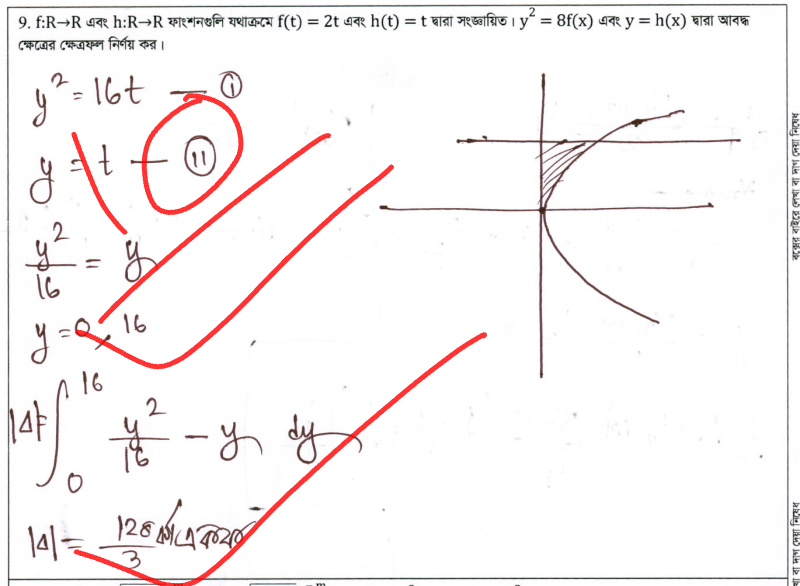 9. f:R→R এবং h:R→R ফাংশনগুলি যথাক্রমে f(t) = 2t এবং h(t) = t দ্বারা সংজ্ঞায়িত। y² = 8f(x) এবং y = h(x) দ্বারা আবদ্ধ
ক্ষেত্রের ক্ষেত্রফল নির্ণয় কর।
y² = 16t — (i)
y = t — (ii)
y²/16 = y
y = 0, 16
|Δ| = ∫₀¹⁶ y²/16 − y dy
|Δ| = 128/3 বর্গ একক
বক্সের বাইরে লেখা বা দাগ দেয়া নিষেধ
বা দাগ দেয়া নিষেধ